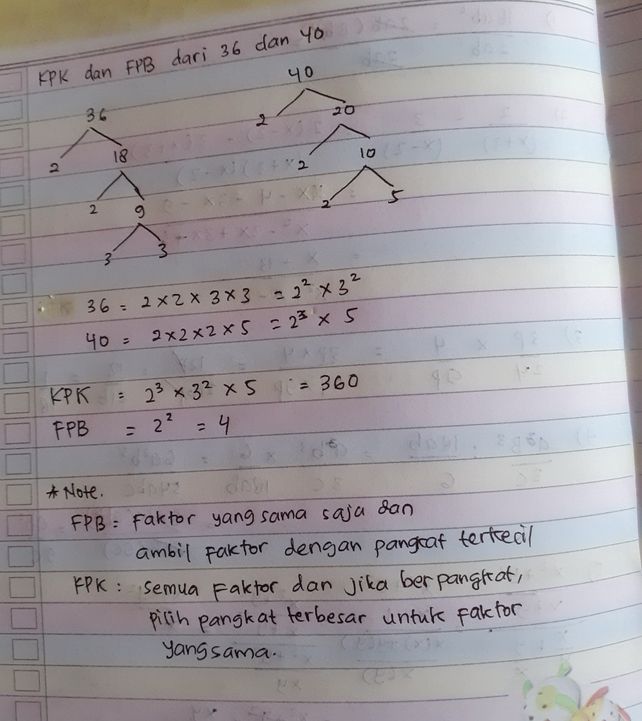 KPK dan FPB dari 36 dan 40
36
2 18
2 9
3 3
40
2 20
2 10
2 5
36 = 2 × 2 × 3 × 3 = 2² × 3²
40 = 2 × 2 × 2 × 5 = 2³ × 5
KPK = 2³ × 3² × 5 = 360
FPB = 2² = 4
* Note.
FPB = Faktor yang sama saja dan
ambil faktor dengan pangkat terkecil
KPK : Semua Faktor dan jika berpangkat,
pilih pangkat terbesar untuk faktor
yang sama.